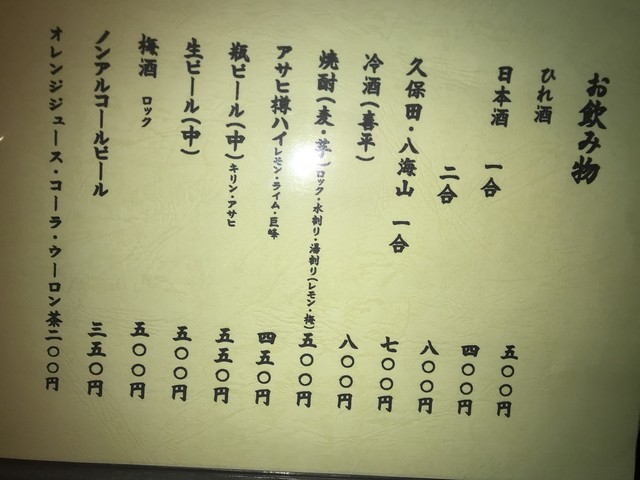 お飲み物
ひれ酒 五〇〇円
日本酒 一合 四〇〇円
二合 八〇〇円
久保田・八海山 一合 七〇〇円
冷酒(喜平) 八〇〇円
焼酎(麦・芋)ロック・水割り・湯割り(レモン・梅) 五〇〇円
アサヒ樽ハイ レモン・ライム・巨峰 四五〇円
瓶ビール(中) キリン・アサヒ 五五〇円
生ビール(中) 五〇〇円
梅酒 ロック 五〇〇円
ノンアルコールビール 三五〇円
オレンジジュース・コーラ・ウーロン茶 二〇〇円